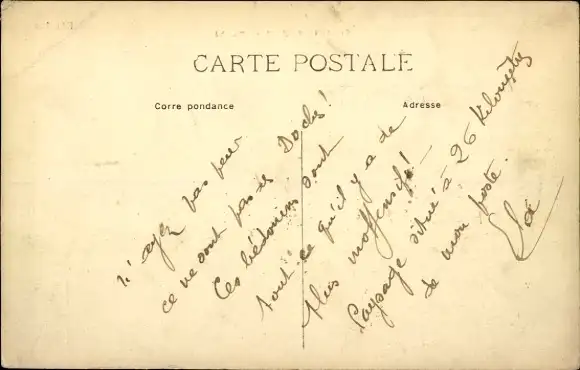 CARTE POSTALE
Corre pondance
Adresse
n'ayez pas peur
ce ne sont pas des Boches!
Ces bédouins sont
tout ce qu'il y a de
plus inoffensifs! —
Paysage situé à 26 Kilomètres
de mon poste.